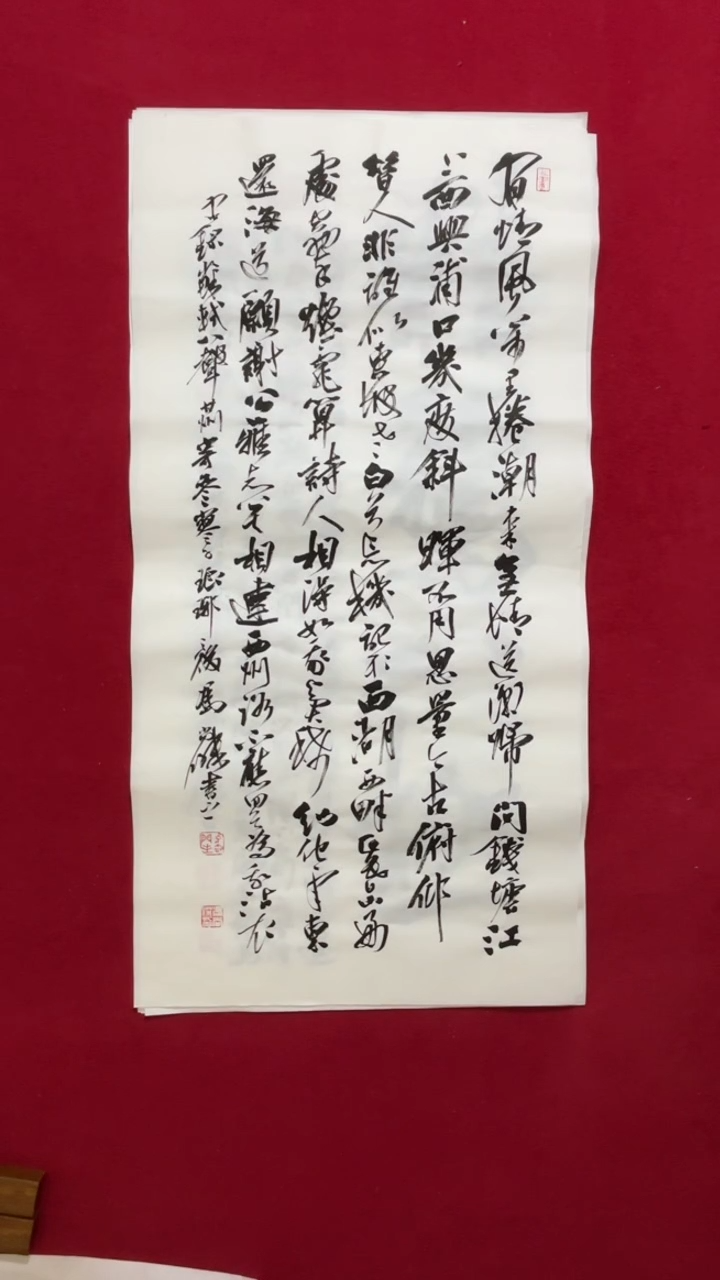 有情風萬里捲潮來無情送潮歸問錢塘江
上西興浦口幾度斜暉不用思量今古俯仰
昔人非誰似東坡老白首忘機記取西湖西畔正山好
處空翠煙霏算詩人相得如我與君稀約他年東
還海道願謝公雅志莫相違西州路不應回首為我沾衣
錄蘇軾八聲甘州寄參寥子琅琊馬書